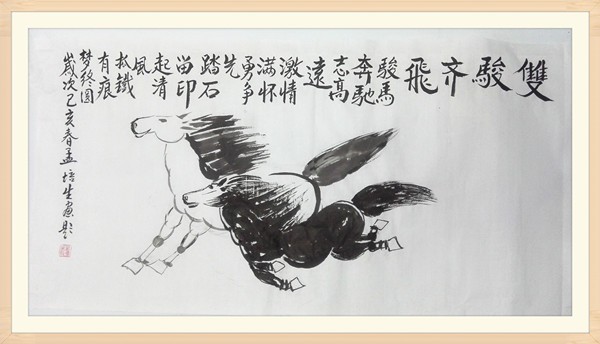 雙駿齐飛
駿馬
奔馳
志高
遠
激情
满怀
勇争
先
踏石
畄印
起清
風
抓鐵
有痕
梦终圆
歲次己亥春孟培生画题